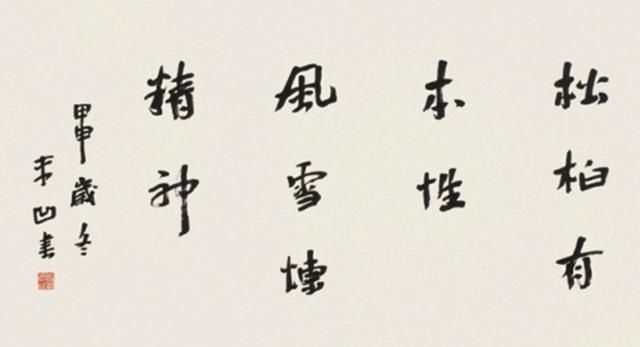 松柏有
本性
風雪煉
精神
甲申歲冬
平凹書